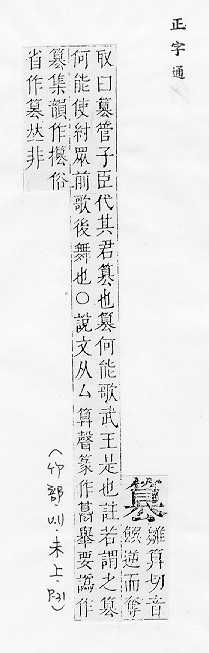 正字通
篡
雛算切音
逆而奪
取曰篡管子臣代其君篡也篡何能歌武王是也註若謂之篡
何能使紂眾前歌後舞也〇說文从厶算聲篆作舉要譌作
篡集韻作俗
省作篡𠀤非
(竹部·未上·P31)